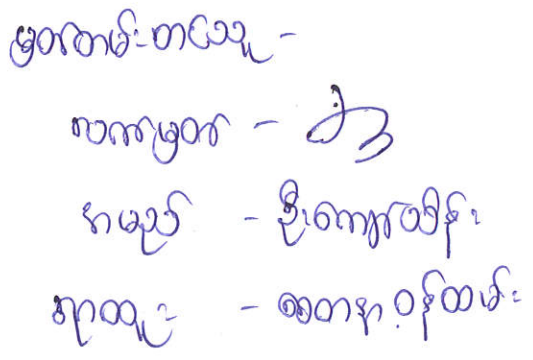 မှတ်တမ်းတင်သူ -
လက်မှတ် -
အမည် - ဦးကျော်သိန်း
ရာထူး - စေတနာ့ဝန်ထမ်း